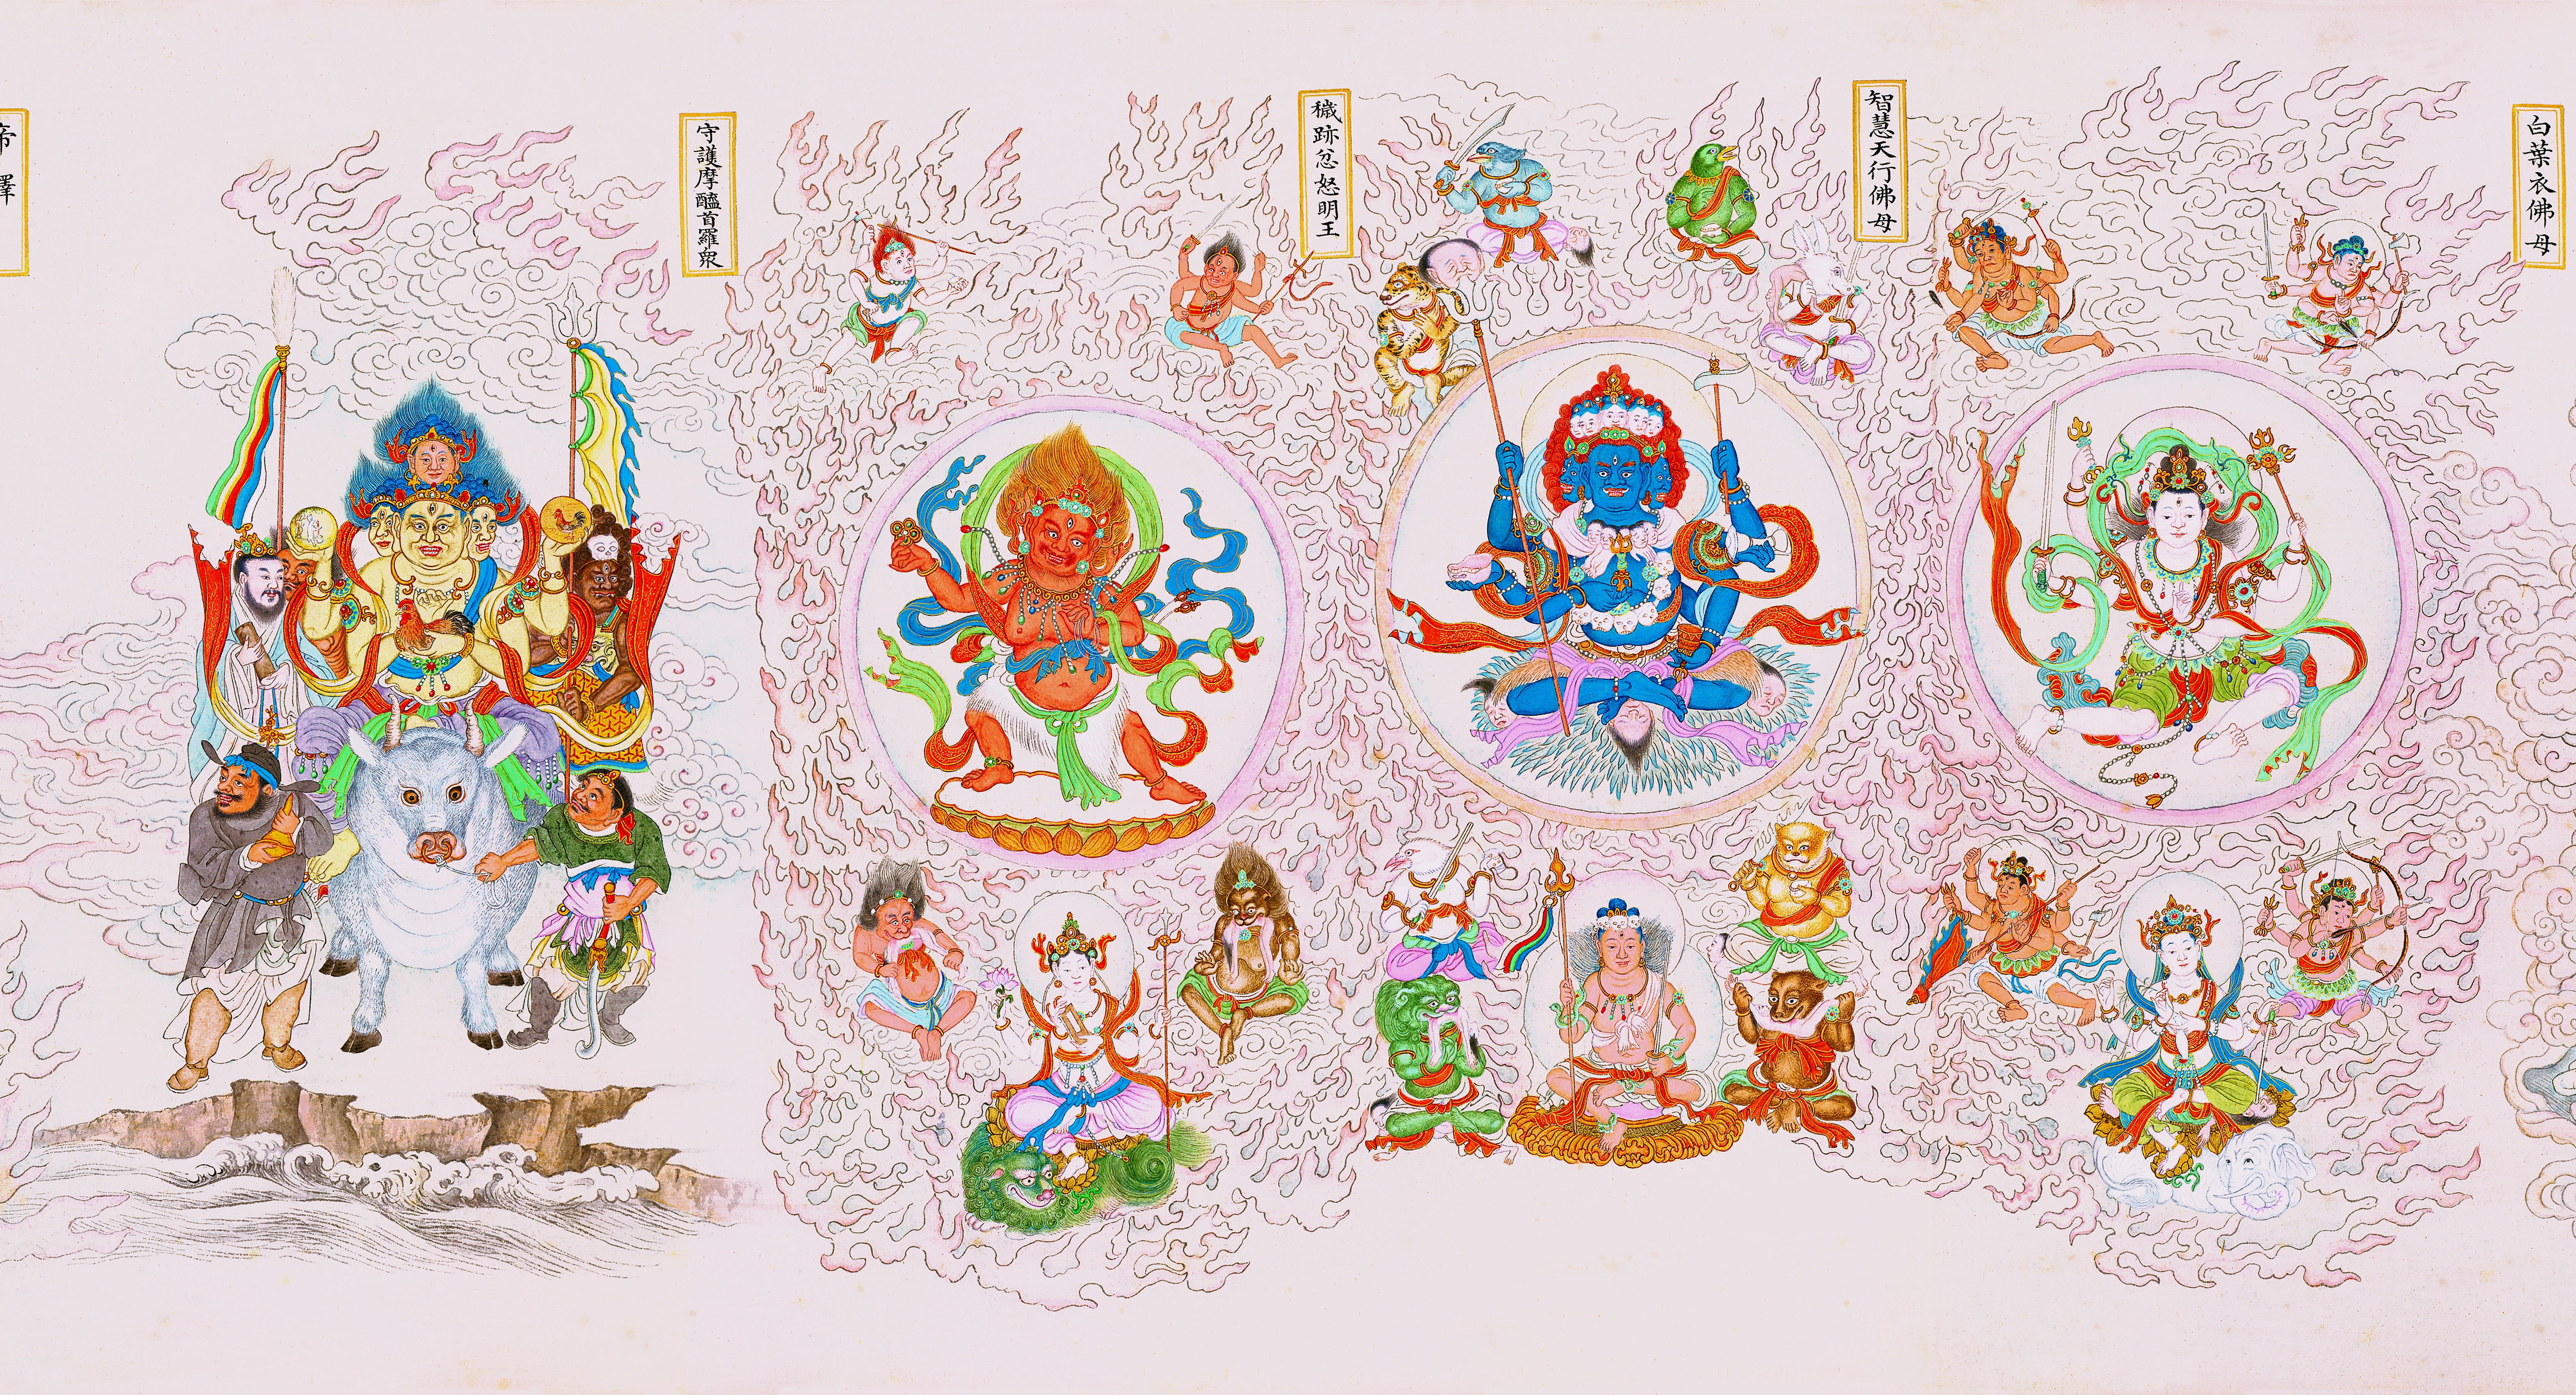 白葉衣佛母
智慧天行佛母
穢跡忿怒明王
守護摩醯首羅衆
帝釋